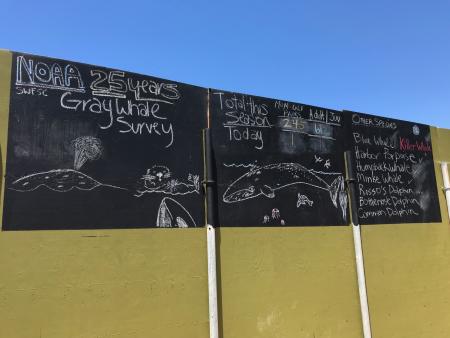 NOAA 25 years
SWFSC
Gray Whale
Survey
Total this
Season
Today
Adult
OTHER SPECIES
Blue Whale
Killer Whale
Harbor Porpoise
Humpback Whale
Minke Whale
Risso's Dolphin
Bottlenose Dolphin
Common Dolphin